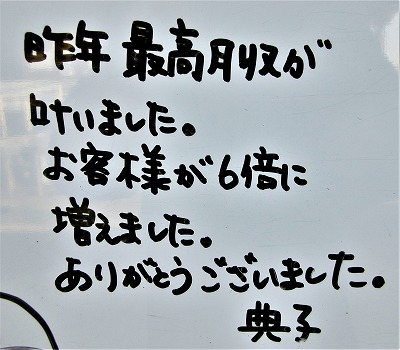 昨年 最高月収が
叶いました。
お客様が6倍に
増えました。
ありがとうございました。
典子